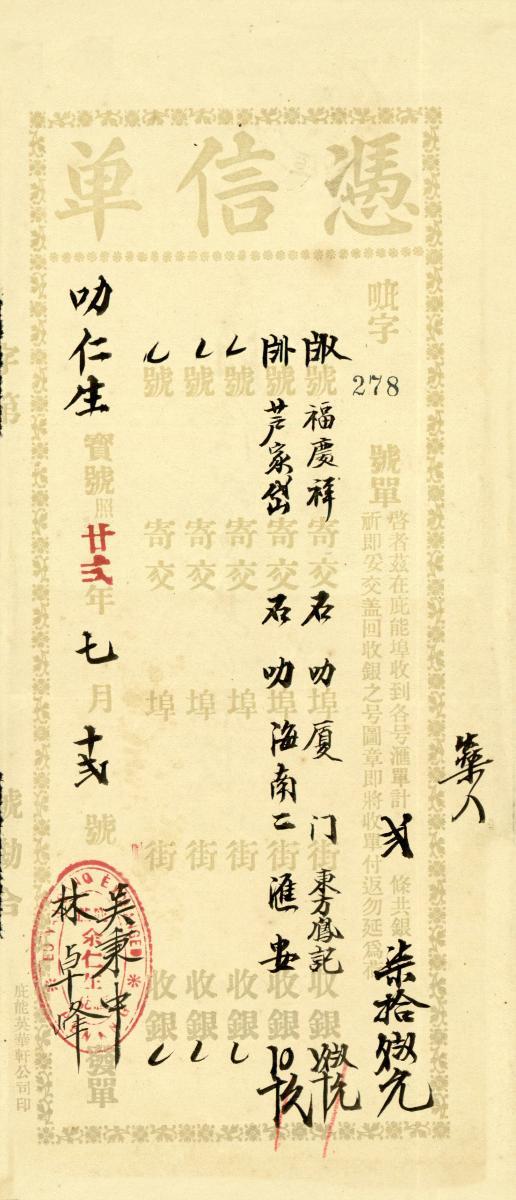 憑信单
咗字
278
號單
啓者茲在庇能埠收到各号滙單計 弍 條共銀 柒拾 元
祈即妥交盖回收銀之号圖章即將收單付返勿延為荷
號 福慶祥 寄交 石叻厦门 埠 東方 記 街 收銀
號 芦家岱 寄交 石叻海南二滙 埠 街 收銀
號 寄交 埠 街 收銀
號 寄交 埠 街 收銀
號 寄交 埠 街 收銀
叻仁生 寶號照 廿弍 年 七 月 十弍 號
吴秉中
林卓峰
發單
余仁生
庇能英華軒公司印
藥人
字第
號勘合